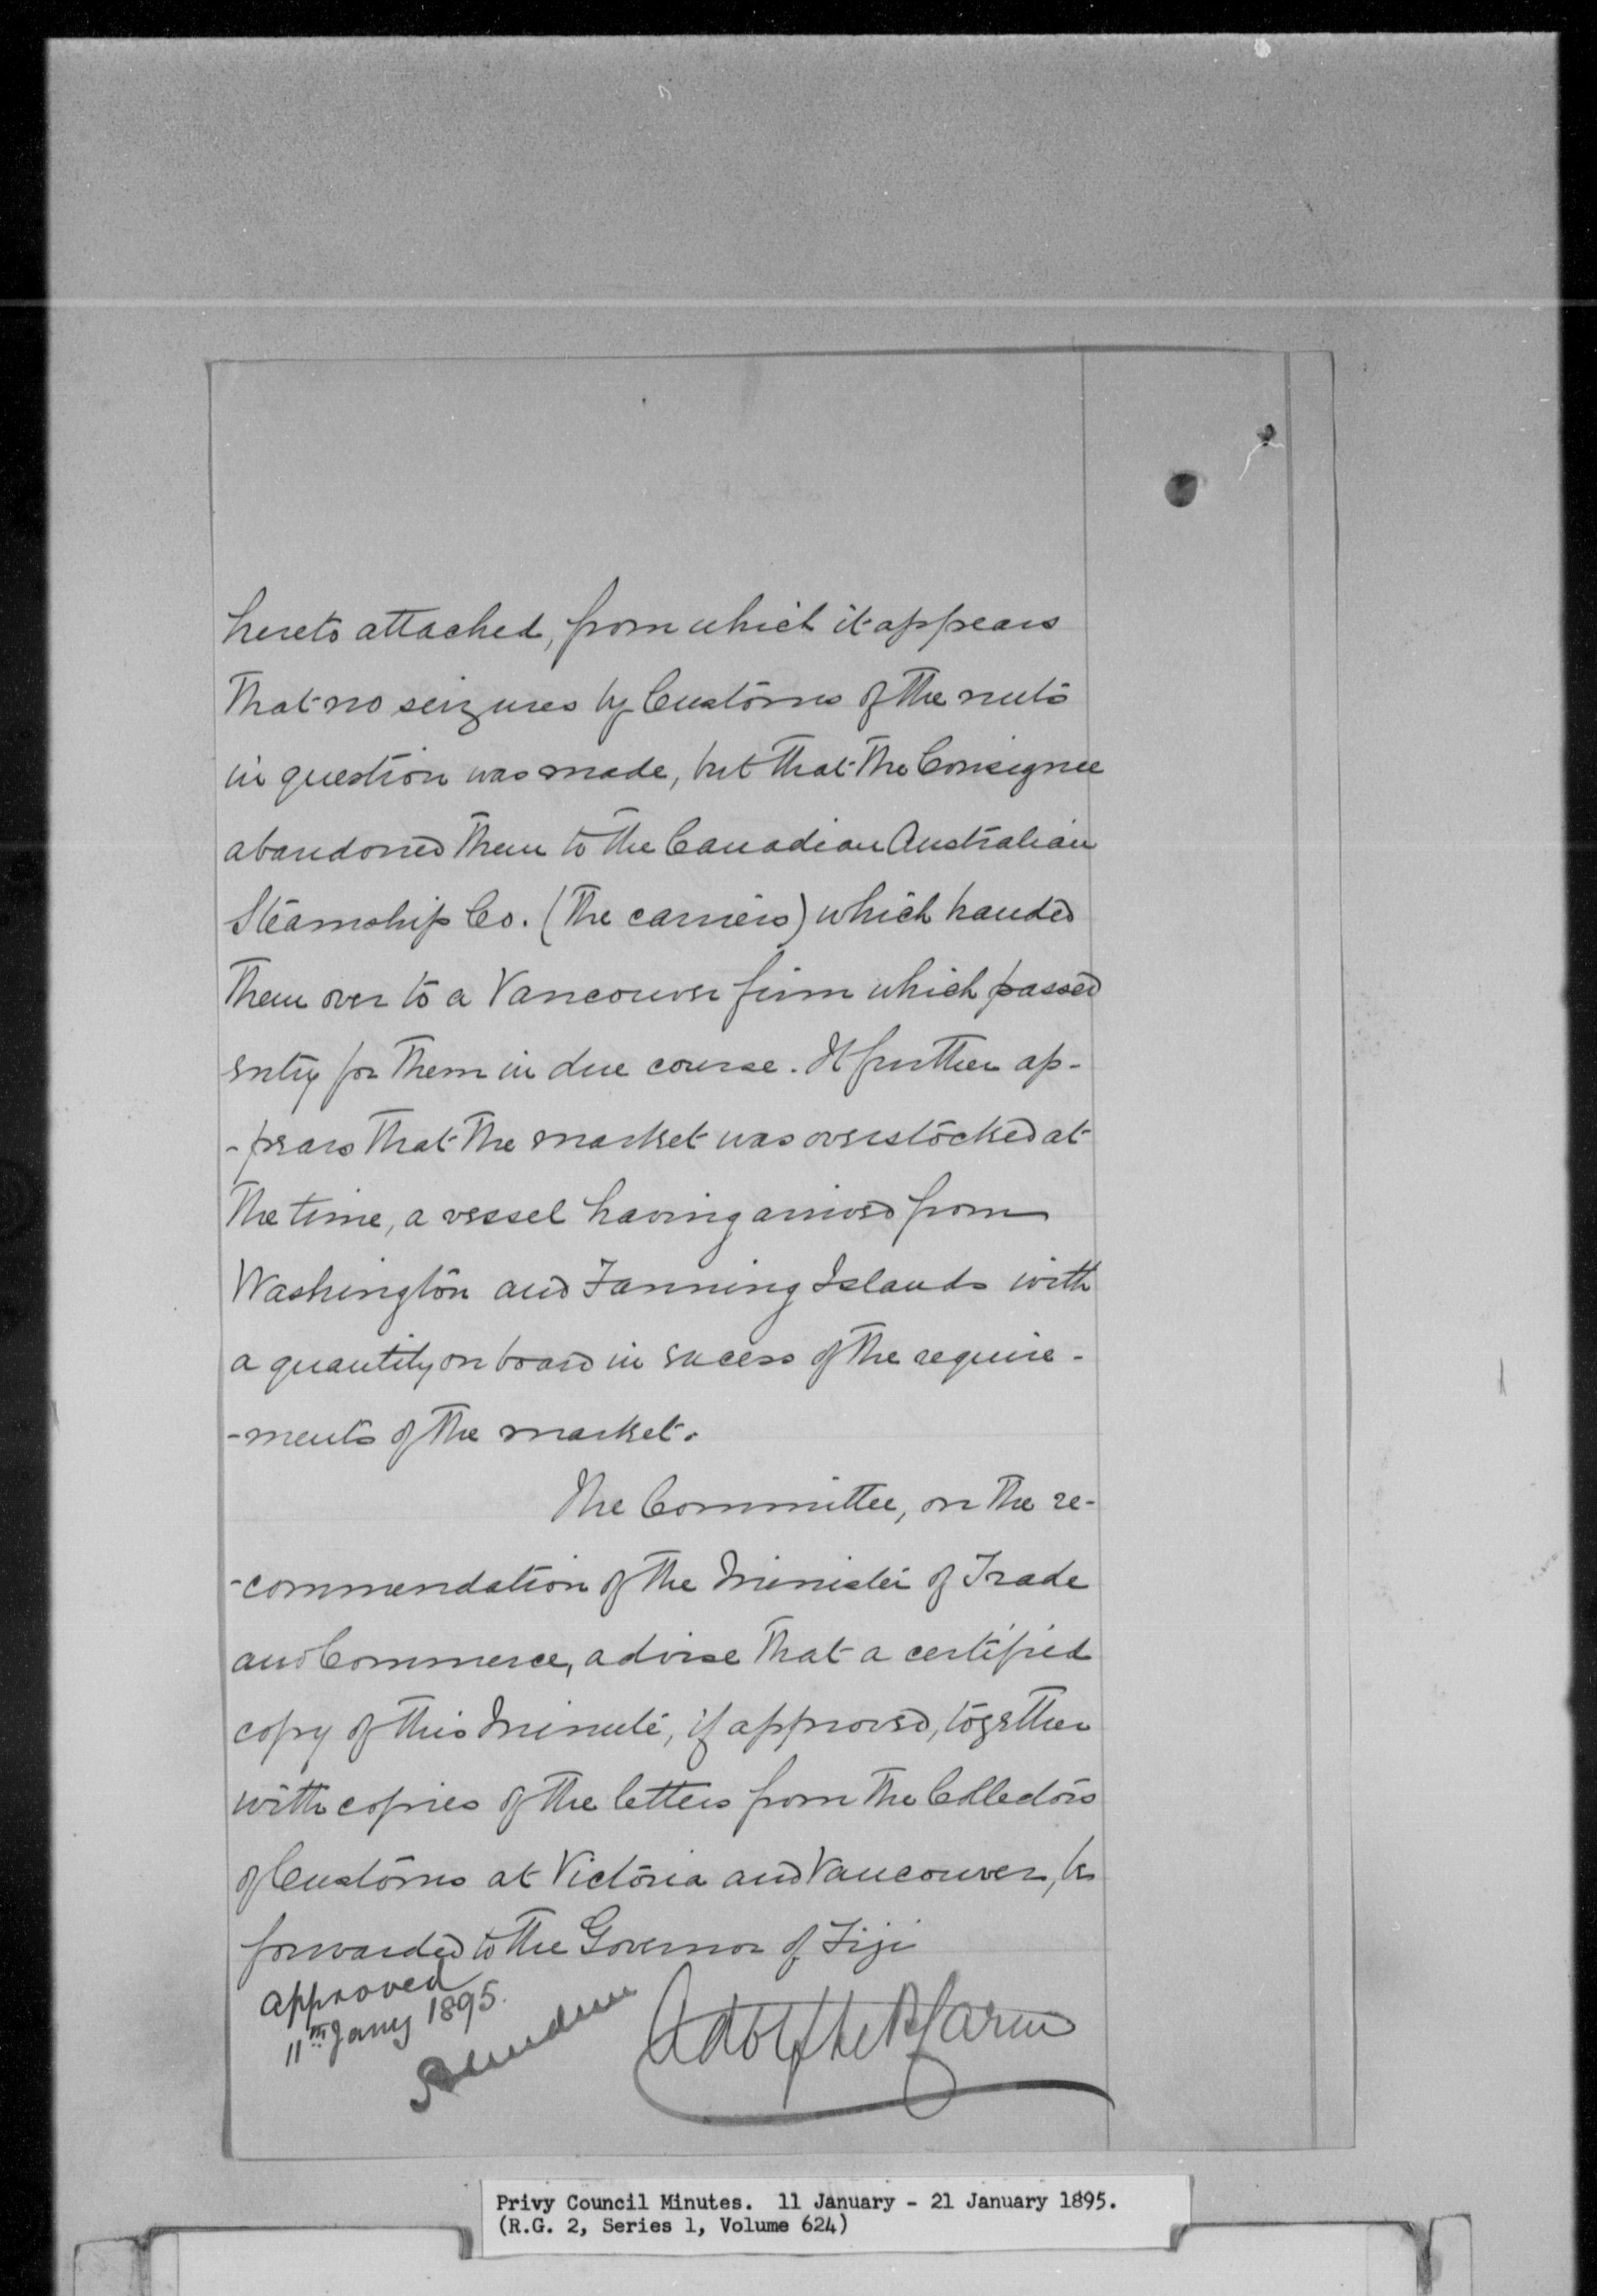 hereto attached, from which it appears
that no seizures by Customs of the nuts
in question was made, but that the Consignee
abandoned them to the Canadian Australian
Steamship Co. (the carriers) which handed
them over to a Vancouver firm which passed
entry for them in due course. It further ap-
-pears that the market was overstocked at
the time, a vessel having arrived from
Washington and Fanning Islands with
a quantity on board in excess of the require-
-ments of the market.
The Committee, on the re-
-commendation of the Minister of Trade
and Commerce, advise that a certified
copy of this Minute, if approved, together
with copies of the letters from the Collectors
of Customs at Victoria and Vancouver, be
forwarded to the Governor of Fiji
approved
11th Jany 1895.
Aberdeen
Adolphe P. Caron
Privy Council Minutes. 11 January - 21 January 1895.
(R.G. 2, Series 1, Volume 624)